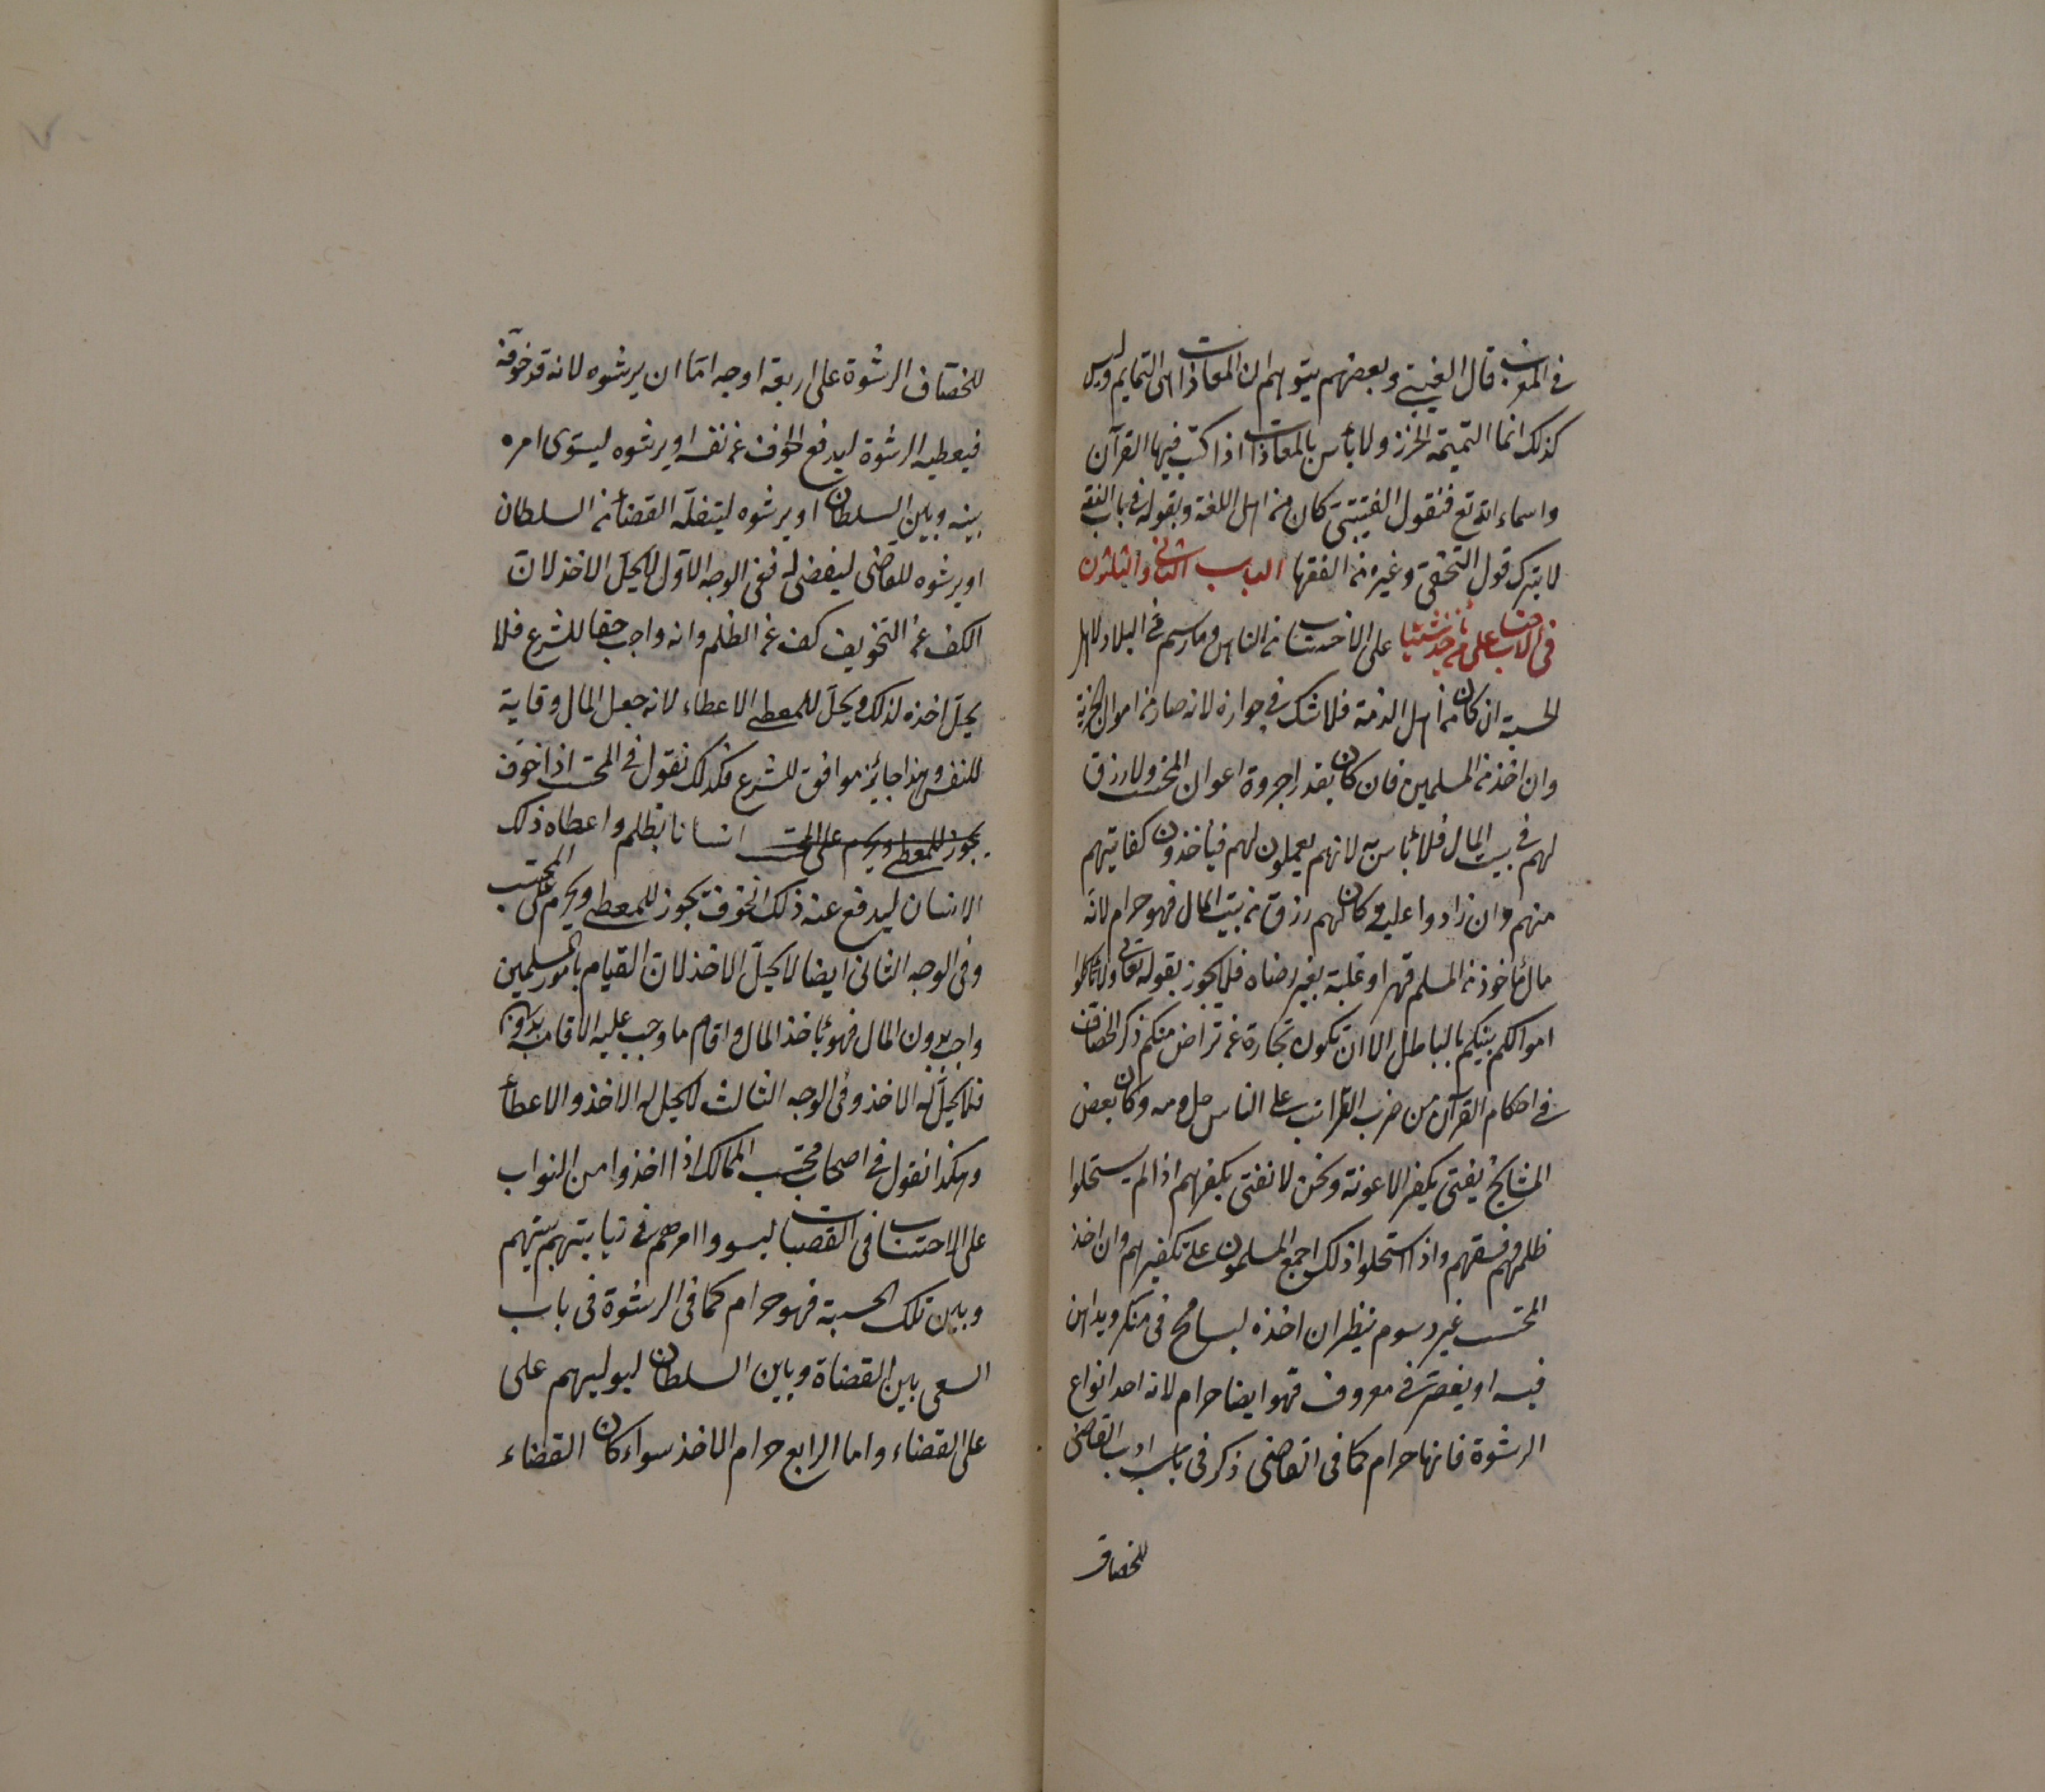 في المغرب قال القتيبي وبعضهم يتوهم ان المعاذات هي التمايم وليس
كذلك انما التميمة الخرز ولا بأس بالمعاذات اذا كتب فيها القرآن
واسماء الله تع فنقول القتيبي كان من اهل اللغة وبقوله في باب الفقه
لا يترك قول النخعي وغيره من الفقها الباب الثاني والثلثون
في الاحتساب على من يأخذ شيئا على الاحتساب من الناس وما رسم في البلاد لاهل
الحسبة ان كان من اهل الذمة فلا شك في جوازه لانه صار من اموال الجزية
وان اخذ من المسلمين فان كان بقدر اجروة اعوان المحتسب ولا رزق
لهم في بيت المال فلا بأس به لانهم يعملون لهم فيأخذون كفايتهم
منهم وان زادوا عليه وكان لهم رزق من بيت المال فهو حرام لانه
مال مأخوذ من المسلم قهرا وغلبة بغير رضاه فلا يجوز بقوله تعالى ولا تأكلوا
اموالكم بينكم بالباطل الا ان تكون تجارة عن تراض منكم ذكر الخصاف
في احكام القرآن من ضرب الضرائب على الناس حل دمه وكان بعض
المشايخ يفتى بكفر الاعونة ونحن لا نفتى بكفرهم اذا لم يستحلوا
ظلمهم فسقهم واذا استحلوا ذلك اجمع المسلمون على تكفيرهم وان اخذ
المحتسب غير رسوم ينظر ان اخذه ليسامح في منكر ويداهن
فيه او يقصر في معروف فهو ايضا حرام لانه احد انواع
الرشوة فانها حرام كما في القاضي ذكر في باب ادب القاضي
للخصاف
للخصاف الرشوة على اربعة اوجه اما ان يرشوه لانه قد خوفه
فيعطيه الرشوة ليدفع الخوف عن نفسه او يرشوه ليسوى امره
بينه وبين السلطان او يرشوه ليتقلد القضأ من السلطان
او يرشوه للقاضي ليقضى له ففى الوجه الاول لا يحل الاخذ لان
الكف عن التخويف كف عن الظلم وانه واجب حقا للشرع فلا
يحل اخذه لذلك ويحل للمعطى الاعطاء لانه جعل المال وقاية
للنفس وهذا جايز موافق للشرع فكذلك نقول في المحتسب اذا خوف
يجوز للمعطى ويحرم على المحتسب انسانا بظلم واعطاه ذلك
الانسان ليدفع عنه ذلك الخوف يجوز للمعطى ويحرم على المحتسب
وفي الوجه الثاني ايضا لا يحل الاخذ لان القيام بامور المسلمين
واجب بدون المال فهو يأخذ المال واقام ما وجب عليه الاقامة بدونه
فلا يحل له الاخذ وفي الوجه الثالث لا يحل له الاخذ والاعطأ
وهكذا نقول في اصحاب محتسب الممالك اذا اخذوا من النواب
على الاحتساب في القصبات ليسووا امرهم في نيابتهم بينهم
وبين تلك الحسبة فهو حرام كما في الرشوة في باب
السعى بين القضاة وبين السلطان ليوليهم على
على القضاء واما الرابع حرام الاخذ سواء كان القضاء